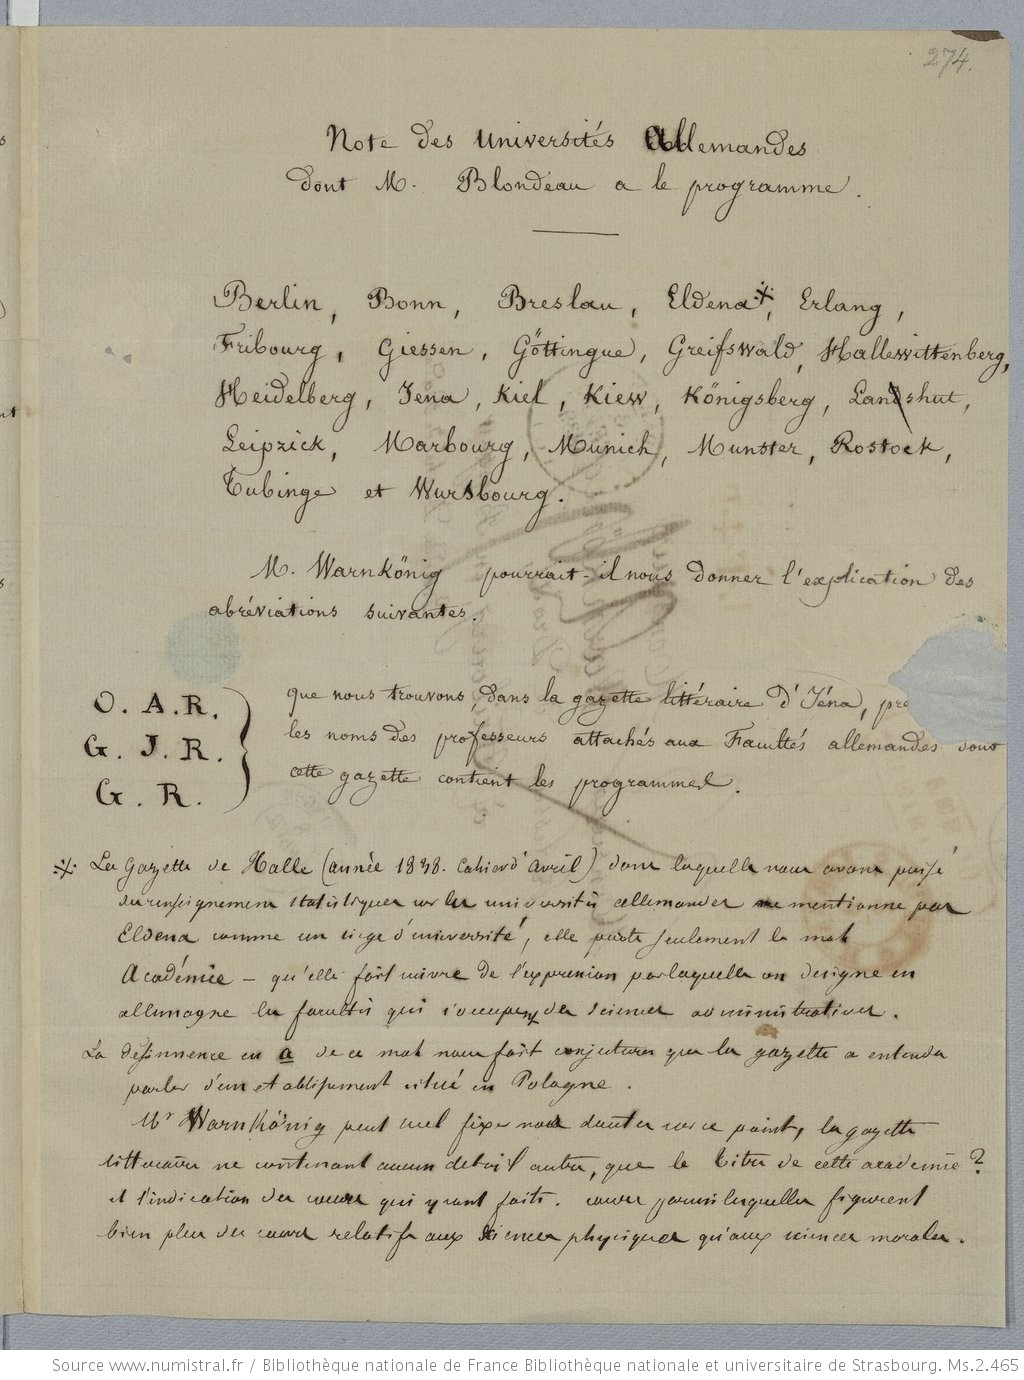 274.
Note des Universités Allemandes
dont M. Blondeau a le programme.
Berlin, Bonn, Breslau, Eldena※, Erlang,
Fribourg, Giessen, Göttingue, Greifswald, Hallewittenberg,
Heidelberg, Jena, Kiel, Kiew, Königsberg, Landshut,
Leipzick, Marbourg, Munich, Munster, Rostock,
Tubinge et Wursbourg.
M. Warnkönig pourrait-il nous donner l'explication des
abréviations suivantes.
O. A. R.
G. J. R.
G. R.
que nous trouvons, dans la gazette littéraire d'Jéna, pré
les noms des professeurs attachés aux Facultés allemandes dont
cette gazette contient les programmes.
※ La Gazette de Halle (année 1838. Cahier d'avril) dans laquelle nous avons puisé
des renseignemens statistiques sur les universités allemandes ne mentionne pas
Eldena comme un siege d'université, elle porte seulement le mot
Académie – qu'elle fait suivre de l'expression par laquelle on designe en
allemagne les facultés qui s'occupent des sciences administratives.
La désinnence en a de ce mot nous fait conjecturer que la gazette a entendu
parler d'un etablissement situé en Pologne.
Mr Warnkönig peut seul fixer nos doutes sur ce point, la gazette
litteraire ne contenant aucun detail autre, que le titre de cette academie?
et l'indication des cours qui y sont faits. cours parmi lesquelles figurent
bien plus de cours relatifs aux sciences physiques qu'aux sciences morales.
Source www.numistral.fr / Bibliothèque nationale de France Bibliothèque nationale et universitaire de Strasbourg. Ms.2.465